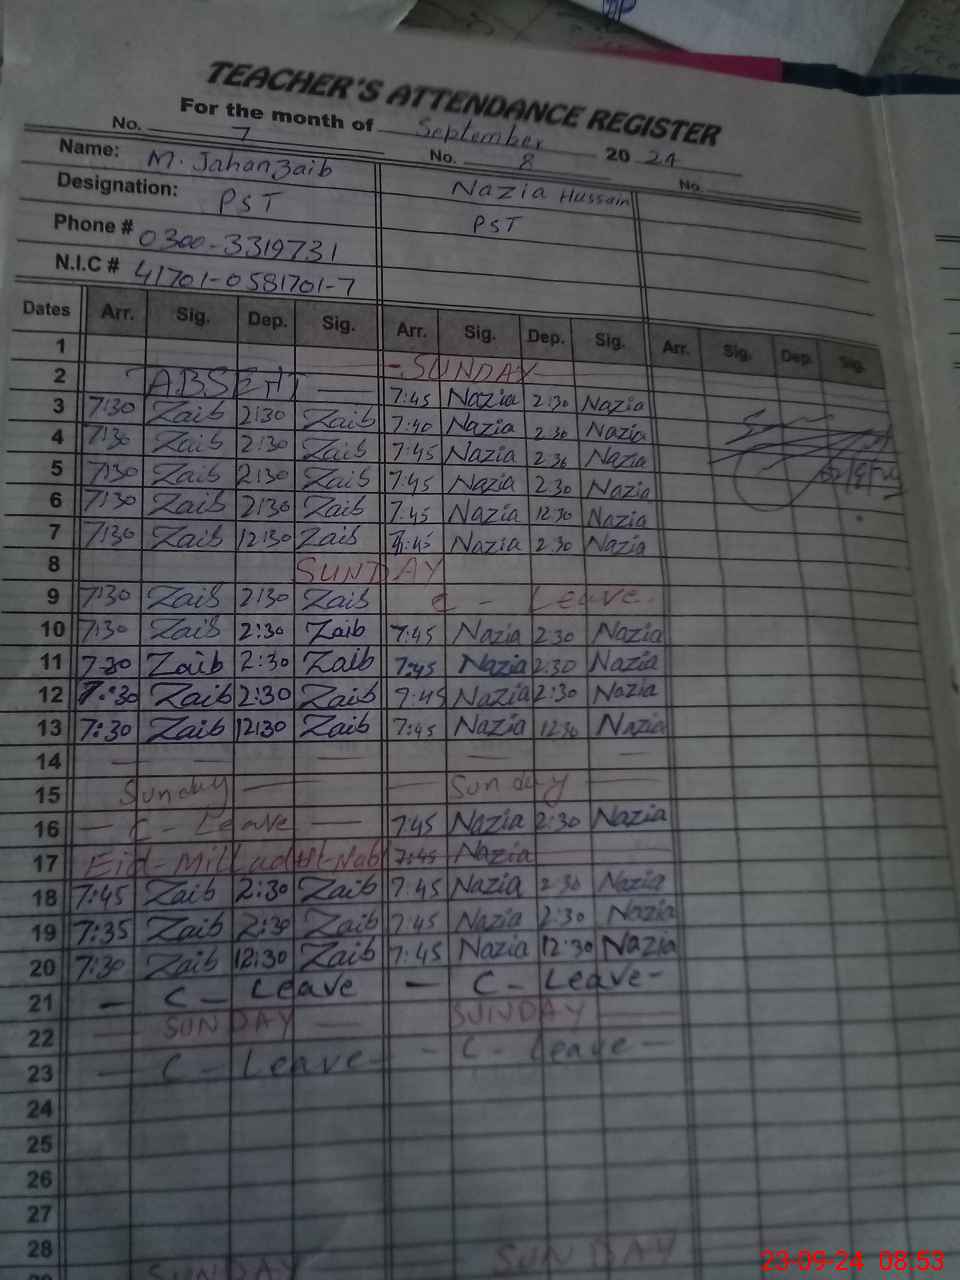 TEACHER'S ATTENDANCE REGISTER
For the month of September 20 24
No. 7 No. 8 No.
Name: M. Jahanzaib Nazia Hussain
Designation: PST PST
Phone # 0300-3319731
N.I.C # 41701-0581701-7
Dates Arr. Sig. Dep. Sig. Arr. Sig. Dep. Sig. Arr. Sig. Dep. Sig.
1 - SUNDAY
2 ABSENT 7:45 Nazia 2:30 Nazia
3 7:30 Zaib 2:30 Zaib 7:40 Nazia 2:30 Nazia
4 7:30 Zaib 2:30 Zaib 7:45 Nazia 2:30 Nazia
5 7:30 Zaib 2:30 Zaib 7:45 Nazia 2:30 Nazia
6 7:30 Zaib 2:30 Zaib 7:45 Nazia 12:30 Nazia
7 7:30 Zaib 12:30 Zaib 7:45 Nazia 2:30 Nazia
8 SUNDAY
9 7:30 Zaib 2:30 Zaib C - Leave
10 7:30 Zaib 2:30 Zaib 7:45 Nazia 2:30 Nazia
11 7:30 Zaib 2:30 Zaib 7:45 Nazia 2:30 Nazia
12 7:30 Zaib 2:30 Zaib 7:45 Nazia 2:30 Nazia
13 7:30 Zaib 12:30 Zaib 7:45 Nazia 12:30 Nazia
14 — — — — — —
15 Sunday — — — Sunday —
16 — C - Leave — 7:45 Nazia 2:30 Nazia
17 Eid-Millad-Ul-Nabi 7:45 Nazia
18 7:45 Zaib 2:30 Zaib 7:45 Nazia 2:30 Nazia
19 7:35 Zaib 2:30 Zaib 7:45 Nazia 2:30 Nazia
20 7:30 Zaib 12:30 Zaib 7:45 Nazia 12:30 Nazia
21 — C - Leave — C - Leave -
22 — SUNDAY — — SUNDAY —
23 — C - Leave - - C - Leave —
24
25
26
27
28
SUNDAY SUNDAY
23-09-24 08:53